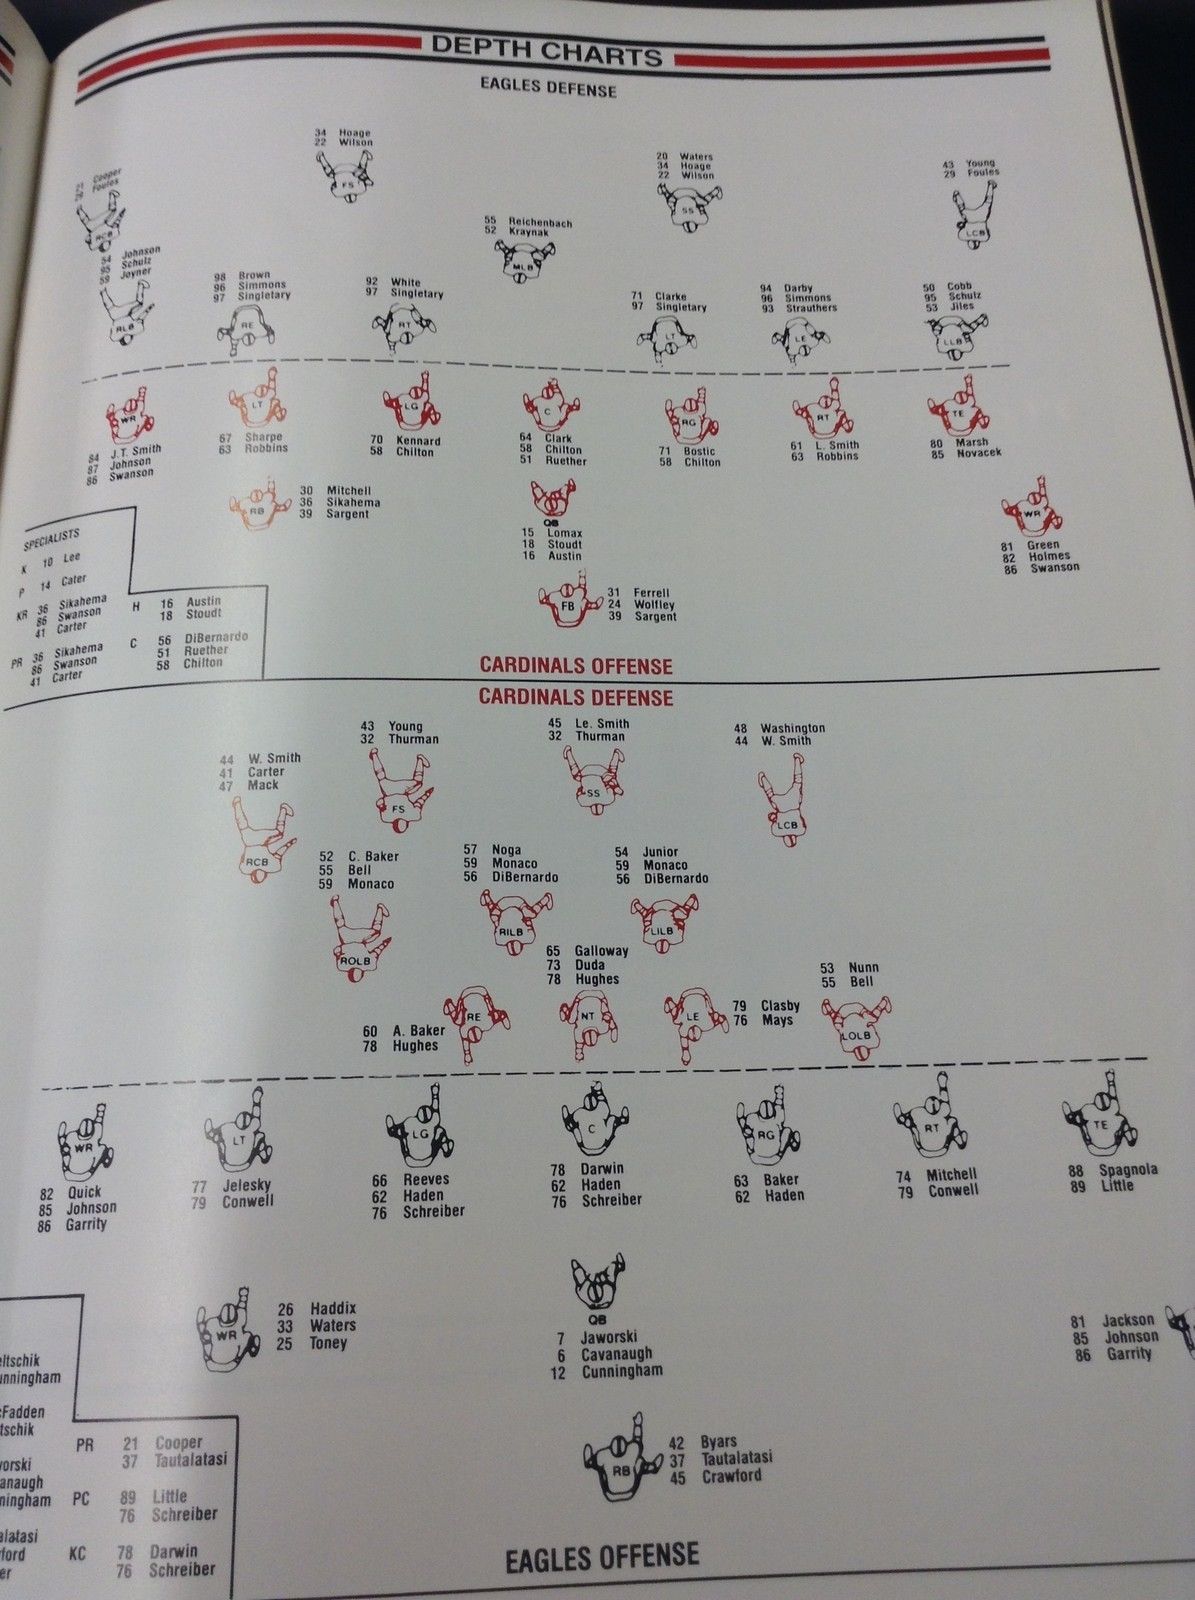 DEPTH CHARTS
EAGLES DEFENSE
34 Hoage
22 Wilson
FS
20 Waters
34 Hoage
22 Wilson
SS
43 Young
29 Foules
LCB
Cooper
Foules
RCB
55 Reichenbach
52 Kraynak
MLB
54 Johnson
95 Schulz
59 Joyner
RLB
98 Brown
96 Simmons
97 Singletary
RE
92 White
97 Singletary
RT
71 Clarke
97 Singletary
LT
94 Darby
96 Simmons
93 Strauthers
LE
50 Cobb
95 Schulz
53 Jiles
LLB
WR
84 J.T. Smith
87 Johnson
86 Swanson
LT
67 Sharpe
63 Robbins
LG
70 Kennard
58 Chilton
C
64 Clark
58 Chilton
51 Ruether
RG
71 Bostic
58 Chilton
RT
61 L. Smith
63 Robbins
TE
80 Marsh
85 Novacek
RB
30 Mitchell
36 Sikahema
39 Sargent
QB
15 Lomax
18 Stoudt
16 Austin
WR
81 Green
82 Holmes
86 Swanson
FB
31 Ferrell
24 Wolfley
39 Sargent
SPECIALISTS
K 10 Lee
P 14 Cater
KR 36 Sikahema
86 Swanson
41 Carter
PR 36 Sikahema
86 Swanson
41 Carter
H 16 Austin
18 Stoudt
C 56 DiBernardo
51 Ruether
58 Chilton
CARDINALS OFFENSE
CARDINALS DEFENSE
44 W. Smith
41 Carter
47 Mack
RCB
43 Young
32 Thurman
FS
45 Le. Smith
32 Thurman
SS
48 Washington
44 W. Smith
LCB
52 C. Baker
55 Bell
59 Monaco
ROLB
57 Noga
59 Monaco
56 DiBernardo
RILB
54 Junior
59 Monaco
56 DiBernardo
LILB
65 Galloway
73 Duda
78 Hughes
NT
53 Nunn
55 Bell
LOLB
60 A. Baker
78 Hughes
RE
LE
79 Clasby
76 Mays
WR
82 Quick
85 Johnson
86 Garrity
LT
77 Jelesky
79 Conwell
LG
66 Reeves
62 Haden
76 Schreiber
C
78 Darwin
62 Haden
76 Schreiber
RG
63 Baker
62 Haden
RT
74 Mitchell
79 Conwell
TE
88 Spagnola
89 Little
WR
26 Haddix
33 Waters
25 Toney
QB
7 Jaworski
6 Cavanaugh
12 Cunningham
81 Jackson
85 Johnson
86 Garrity
RB
42 Byars
37 Tautalatasi
45 Crawford
eltschik
unningham
cFadden
tschik
vorski
anaugh
ningham
alatasi
ford
er
PR 21 Cooper
37 Tautalatasi
PC 89 Little
76 Schreiber
KC 78 Darwin
76 Schreiber
EAGLES OFFENSE